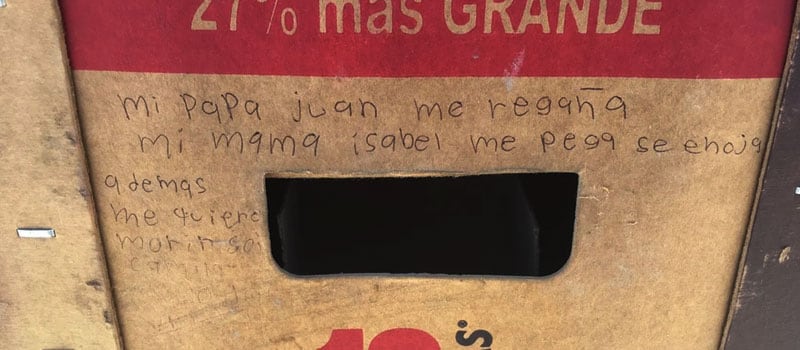 27% más GRANDE
mi papa juan me regaña
mi mama isabel me pega se enoja
ademas
me quiero
morir soi